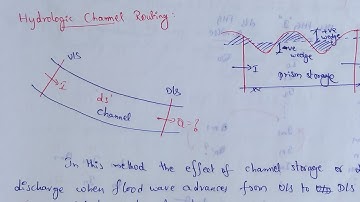 Hydrologic Channel Routing:
U/S
I
ds'
channel
D/S
Q=?
+ve
wedge
-ve
wedge
I
prism storage
In this method the effect of channel storage or
discharge when flood wave advances from U/s to D/s